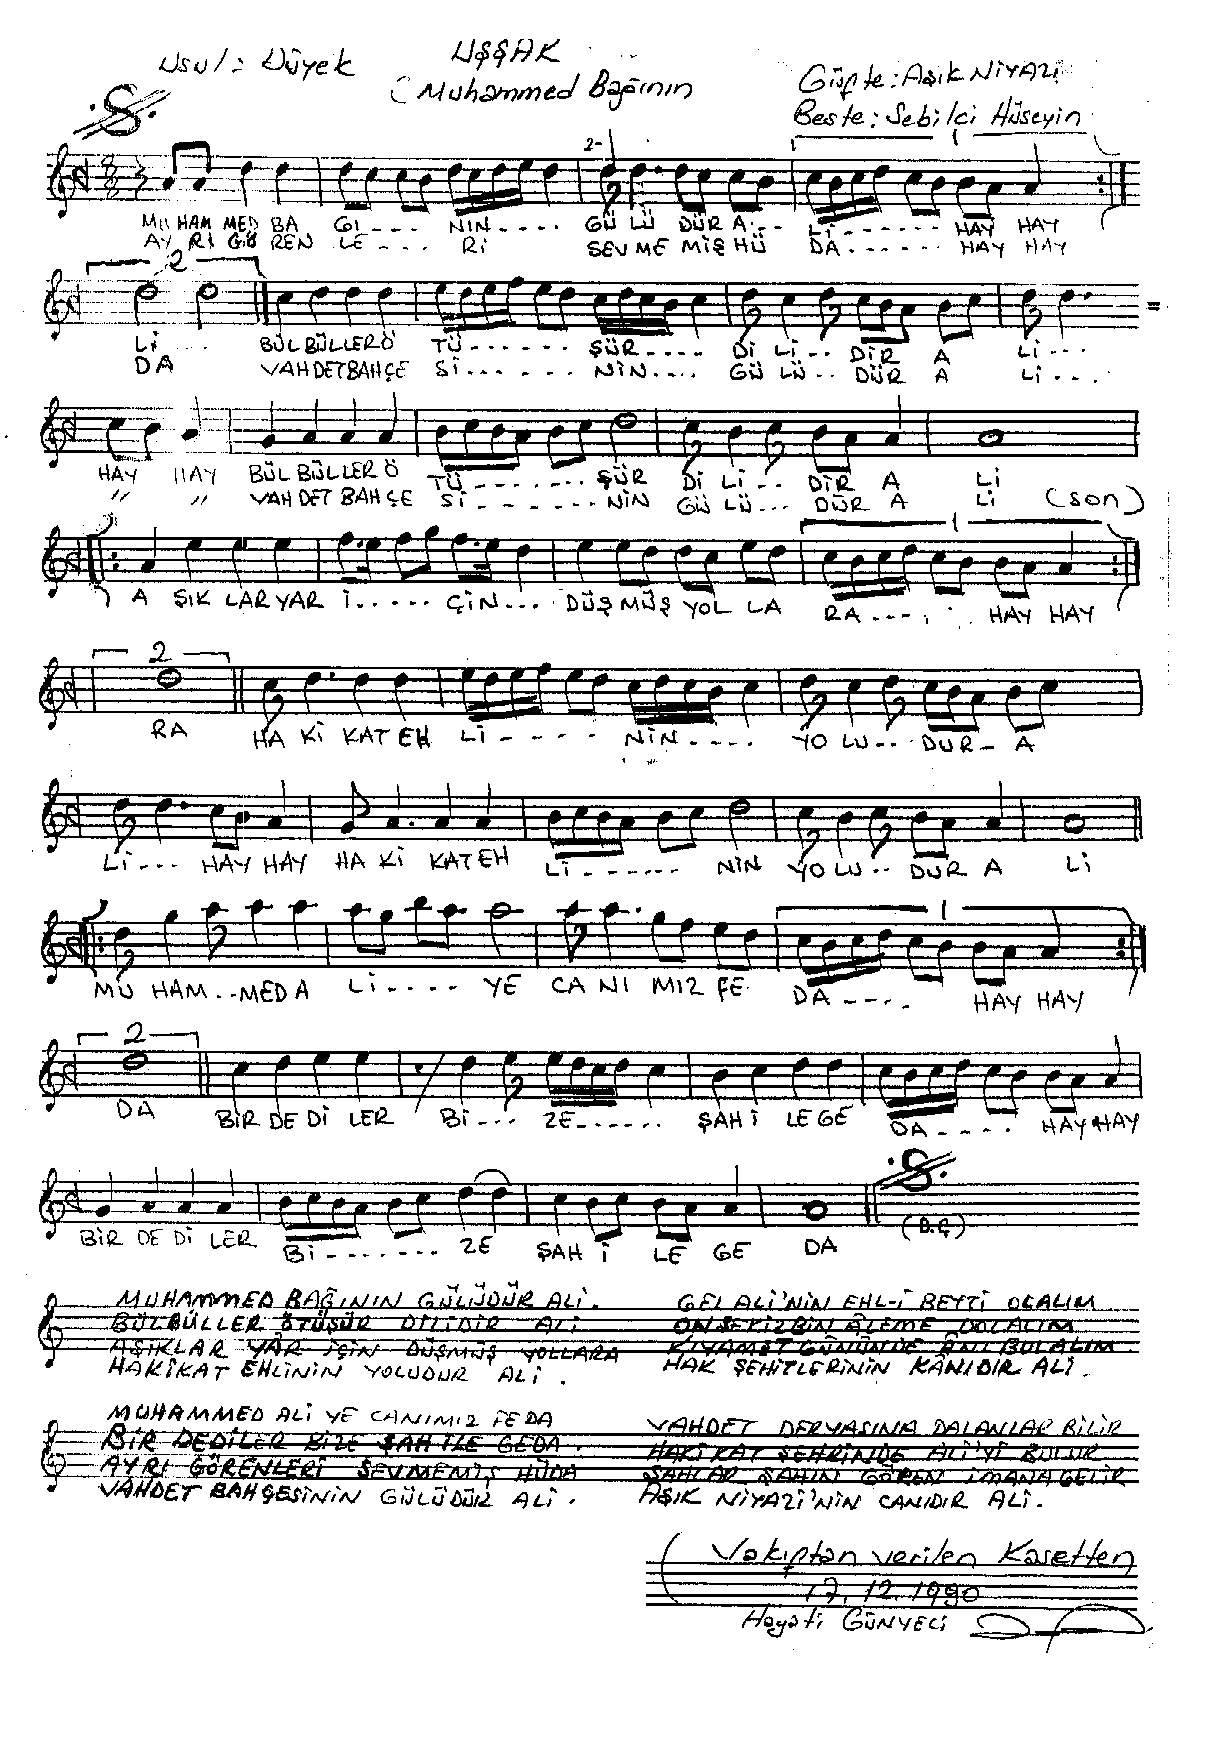 Usul: Düyek
UŞŞAK
(Muhammed Bağının
Güfte: Aşık NİYAZİ
Beste: Sebilci Hüseyin
2-
1
MU HAM MED BA GI---- NIN---- GÜ LÜ DÜR A--- Lİ------ HAY HAY
AY RI GÖ REN LE---- Rİ SEV ME MİŞ HÜ DA------ HAY HAY
2
Lİ... BÜL BÜL LER Ö TÜ------ ŞÜR---- Dİ Lİ-- DİR A Lİ---
DA VAH DET BAH ÇE Sİ------ NİN---- GÜ LÜ-- DÜR A Lİ---
HAY HAY BÜL BÜL LER Ö TÜ------- ŞÜR Dİ Lİ-- DİR A Lİ
" " VAH DET BAH ÇE Sİ------ NİN GÜ LÜ--- DÜR A Lİ (son)
1
A ŞIK LAR YAR İ----- ÇİN--- DÜŞ MÜŞ YOL LA RA---- HAY HAY
2
RA HA Kİ KAT EH Lİ----- NİN---- YO LU-- DUR- A
Lİ--- HAY HAY HA Kİ KAT EH Lİ------ NİN YO LU-- DUR A Lİ
1
MU HAM--MED A Lİ---- YE CA NI MIZ FE DA---- HAY HAY
2
DA BİR DE Dİ LER Bİ--- ZE------ ŞAH İ LE GE DA---- HAY HAY
BİR DE Dİ LER Bİ------- ZE ŞAH İ LE GE DA
(B.Ç)
MUHAMMED BAĞININ GÜLÜDÜR ALİ.
BÜLBÜLLER ÖTÜŞÜR DİLİDİR ALİ
AŞIKLAR YÂR İÇİN DÜŞMÜŞ YOLLARA
HAKİKAT EHLİNİN YOLUDUR ALİ.
GEL ALİ'NİN EHL-İ BEYTİ OLALIM
ONSEKİZBİN ÂLEME DOLALIM
KIYAMET GÜNÜNDE ÂNI BULALIM
HAK ŞEHİTLERİNİN KÂNIDIR ALİ.
MUHAMMED ALİ YE CANIMIZ FEDA
BİR DEDİLER BİZE ŞAH İLE GEDA.
AYRI GÖRENLERİ SEVMEMİŞ HÜDA
VAHDET BAHÇESİNİN GÜLÜDÜR ALİ.
VAHDET DERYASINA DALANLAR BİLİR
HAKİKAT ŞEHRİNDE ALİ'Yİ BULUR
ŞAHLAR ŞAHIN GÖREN İMANA GELİR
AŞIK NİYAZİ'NİN CANIDIR ALİ.
(Vakıftan verilen Kasetten
17.12.1990
Hayati GÜNYELİ